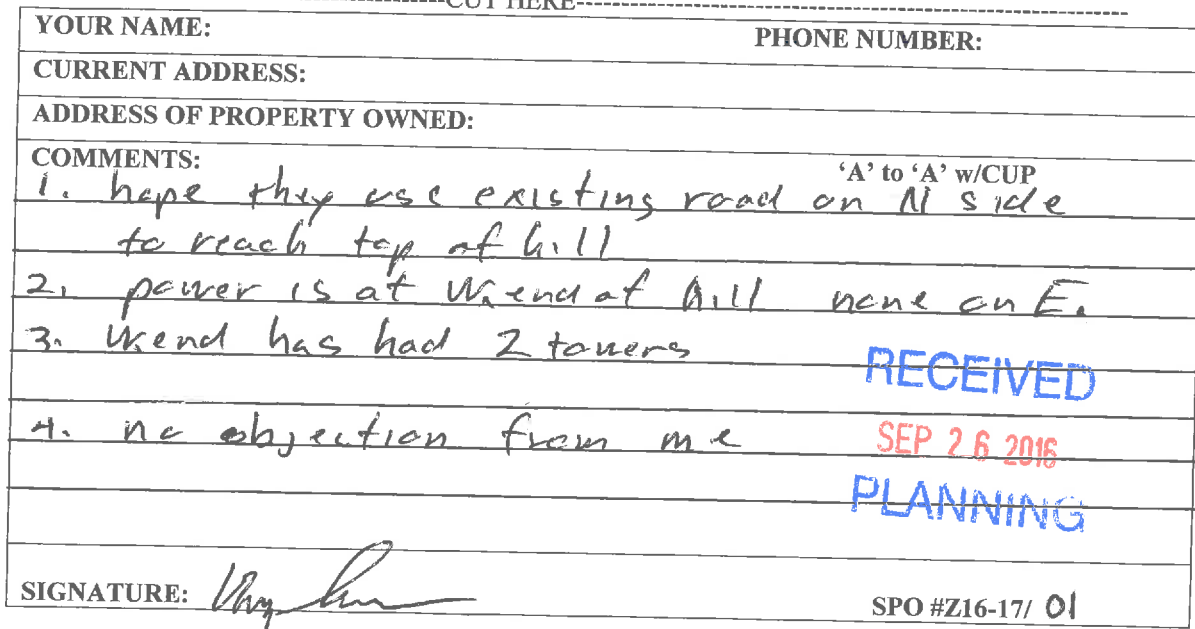 CUT HERE
YOUR NAME: PHONE NUMBER:
CURRENT ADDRESS:
ADDRESS OF PROPERTY OWNED:
COMMENTS: 'A' to 'A' w/CUP
1. hope they use existing road on N side
to reach top of hill
2. power is at W. end of hill none on E.
3. W end has had 2 towers
RECEIVED
4. no objection from me
SEP 26 2016
PLANNING
SIGNATURE:
SPO #Z16-17/ 01